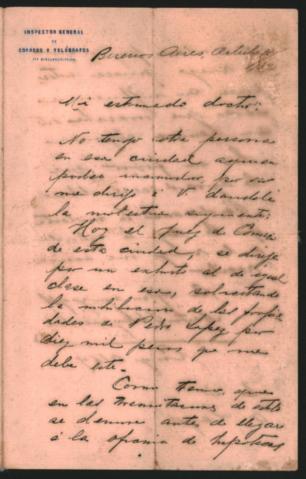 INSPECTOR GENERAL
DE
CORREOS Y TELÉGRAFOS
Buenos Aires, Octubre
Mi estimado doctor:
No tengo otra persona
en esa ciudad a quien
poder incomodar, por eso
me dirijo á V. dandole
la molestia siguiente:
Hoy el Juez de Comercio
de esta ciudad, se dirije
por un exhorto al de igual
clase en esa, solicitando
la inhibicion de las propie
dades de Pedro Lopez por
diez mil pesos que me
debe este.
Como temo, que
en las tramitaciones de
se demore antes de llegar
á la oficina de hipotecas